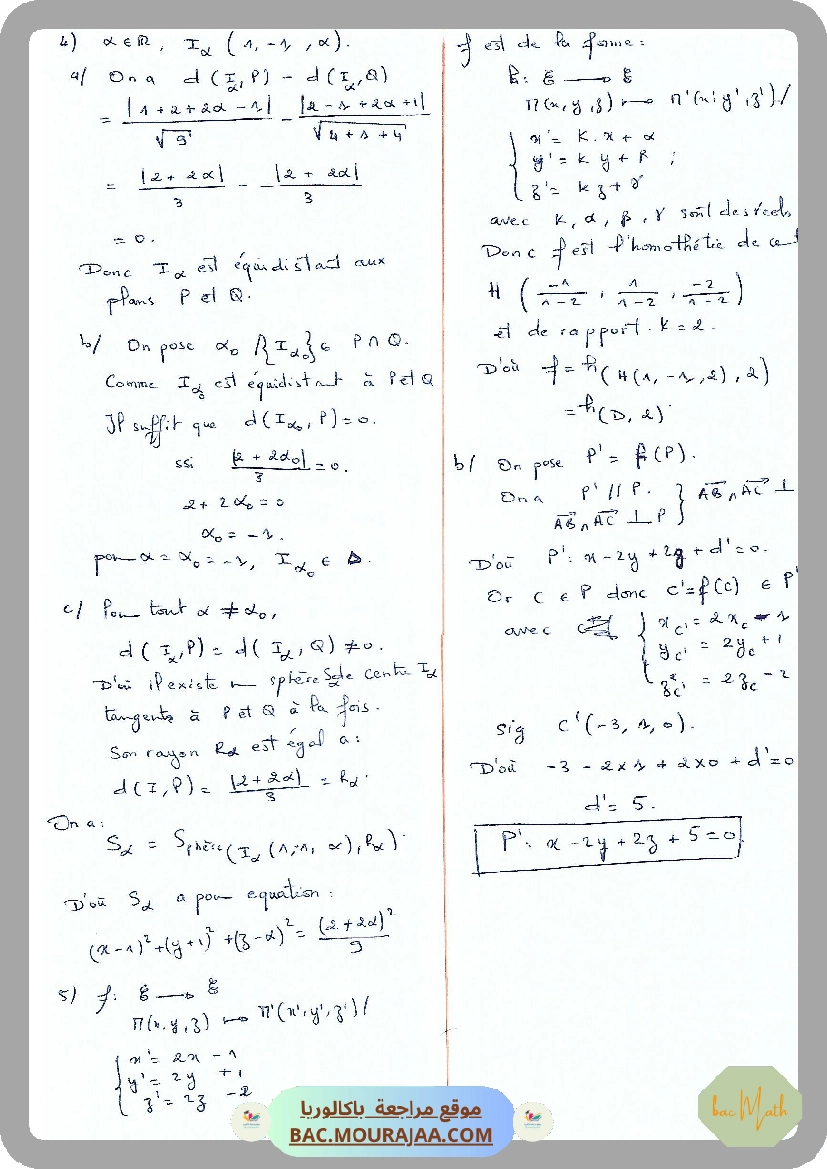 4) α ∈ ℝ, Iα (1, -1, α).
a/ On a d(Iα, P) - d(Iα, Q)
= |1+2+2α-1| / √9 - |2-1+2α+1| / √(4+1+4)
= |2+2α| / 3 - -|2+2α| / 3
= 0.
Donc Iα est équidistant aux
plans P et Q.
b/ On pose α₀ / {Iα₀} ∈ P ∩ Q.
Comme Iα est équidistant à P et Q
Il suffit que d(Iα₀, P) = 0.
ssi |2+2α₀| / 3 = 0.
2 + 2α₀ = 0
α₀ = -1.
pour α = α₀ = -1, Iα₀ ∈ Δ.
c/ Pour tout α ≠ α₀,
d(Iα, P) = d(Iα, Q) ≠ 0.
D'où il existe un sphère Sα de centre Iα
tangente à P et Q à la fois.
Son rayon Rα est égal à :
d(I, P) = |2+2α| / 3 = Rα.
On a :
Sα = Sphère(Iα(1,-1, α), Rα).
D'où Sα a pour equation :
(x-1)² + (y+1)² + (z-α)² = (2+2α)² / 9
5) f: ℰ → ℰ
M(x,y,z) ↦ M'(x',y',z') /
{ x' = 2x - 1
y' = 2y + 1
z' = 2z - 2
f est de la forme :
h: ℰ → ℰ
M(x,y,z) ↦ M'(x',y',z') /
{ x' = K.x + α
y' = K y + β ;
z' = K z + γ
avec K, α, β, γ sont des réels
Donc f est l'homothétie de cent
H ( -1/1-2 , 1/1-2 , -2/1-2 )
et de rapport. K = 2.
D'où f = h(H(1,-1,2), 2)
= h(D, 2).
b/ On pose P' = f(P).
On a P' // P. } AB∧AC ⊥
AB∧AC ⊥ P
D'où P': x - 2y + 2z + d' = 0.
Or C ∈ P donc C' = f(C) ∈ P'
avec { xC' = 2xC - 1
yC' = 2yC + 1
zC' = 2zC - 2
sig C'(-3, 1, 0).
D'où -3 - 2×1 + 2×0 + d' = 0
d' = 5.
P': x - 2y + 2z + 5 = 0
موقع مراجعة باكالوريا
BAC.MOURAJAA.COM
bac Math